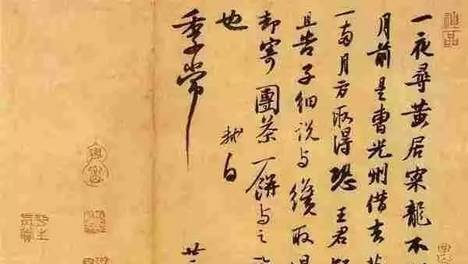 一夜尋黃居寀龍不
月前是曹光州借去
一兩月方取得恐王君
且告子細說與纔取
却寄團茶一餅與之
也
軾白
季常
廿